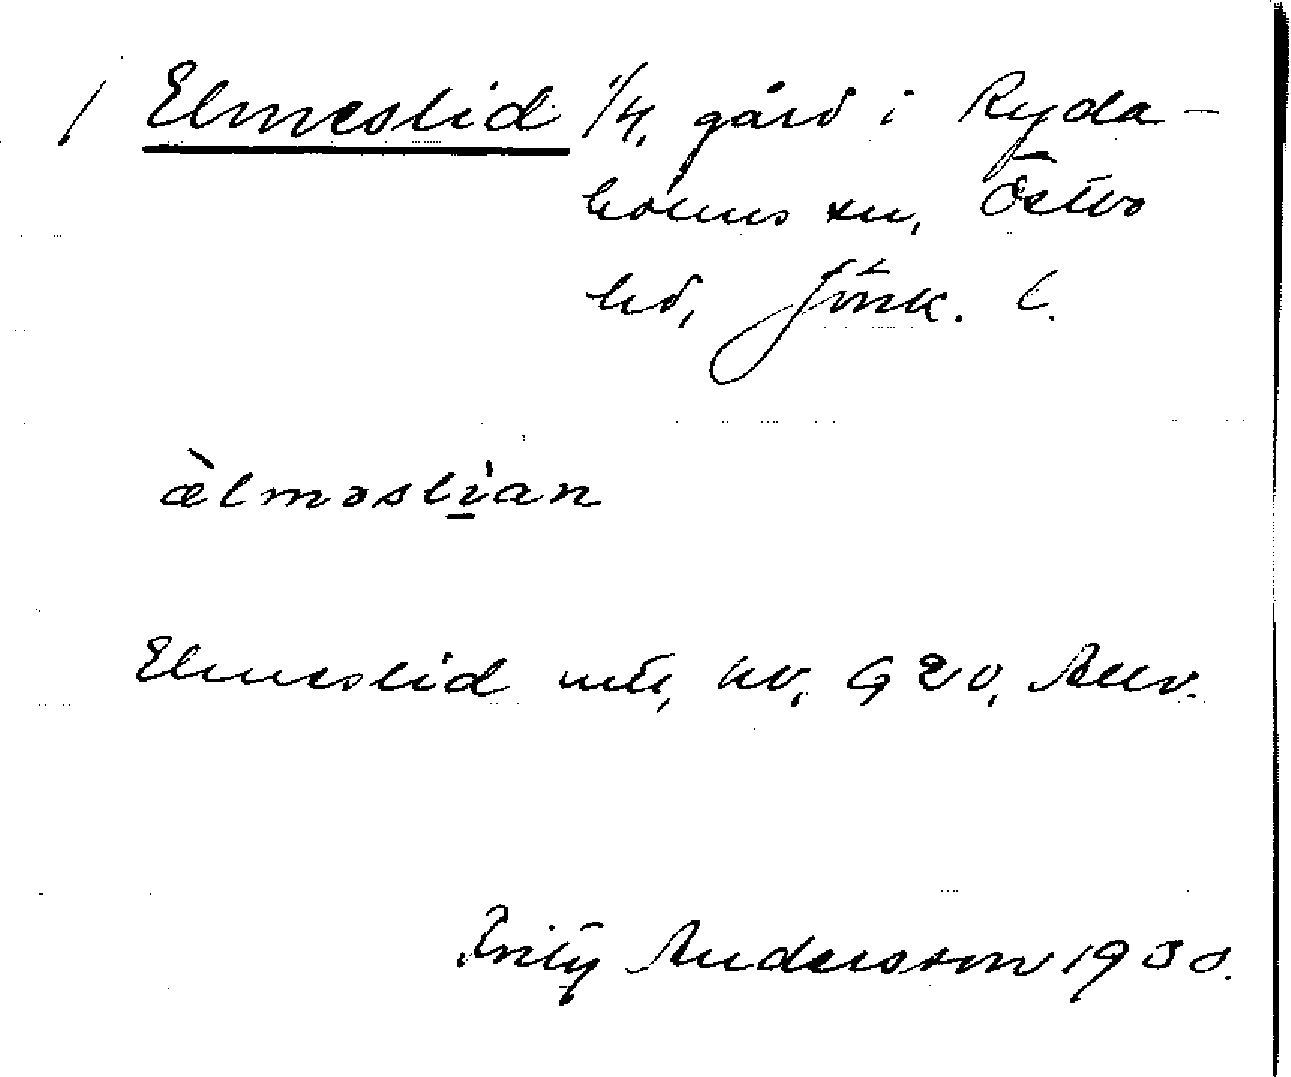 / Elmeslid 1/4, gård i Ryda-
holms sn, Östbo
hd, Jönk. l.
æ̀lməsli̠̍an
Elmeslid mtl, nv, G 20,
Fritz Andersson 1933.